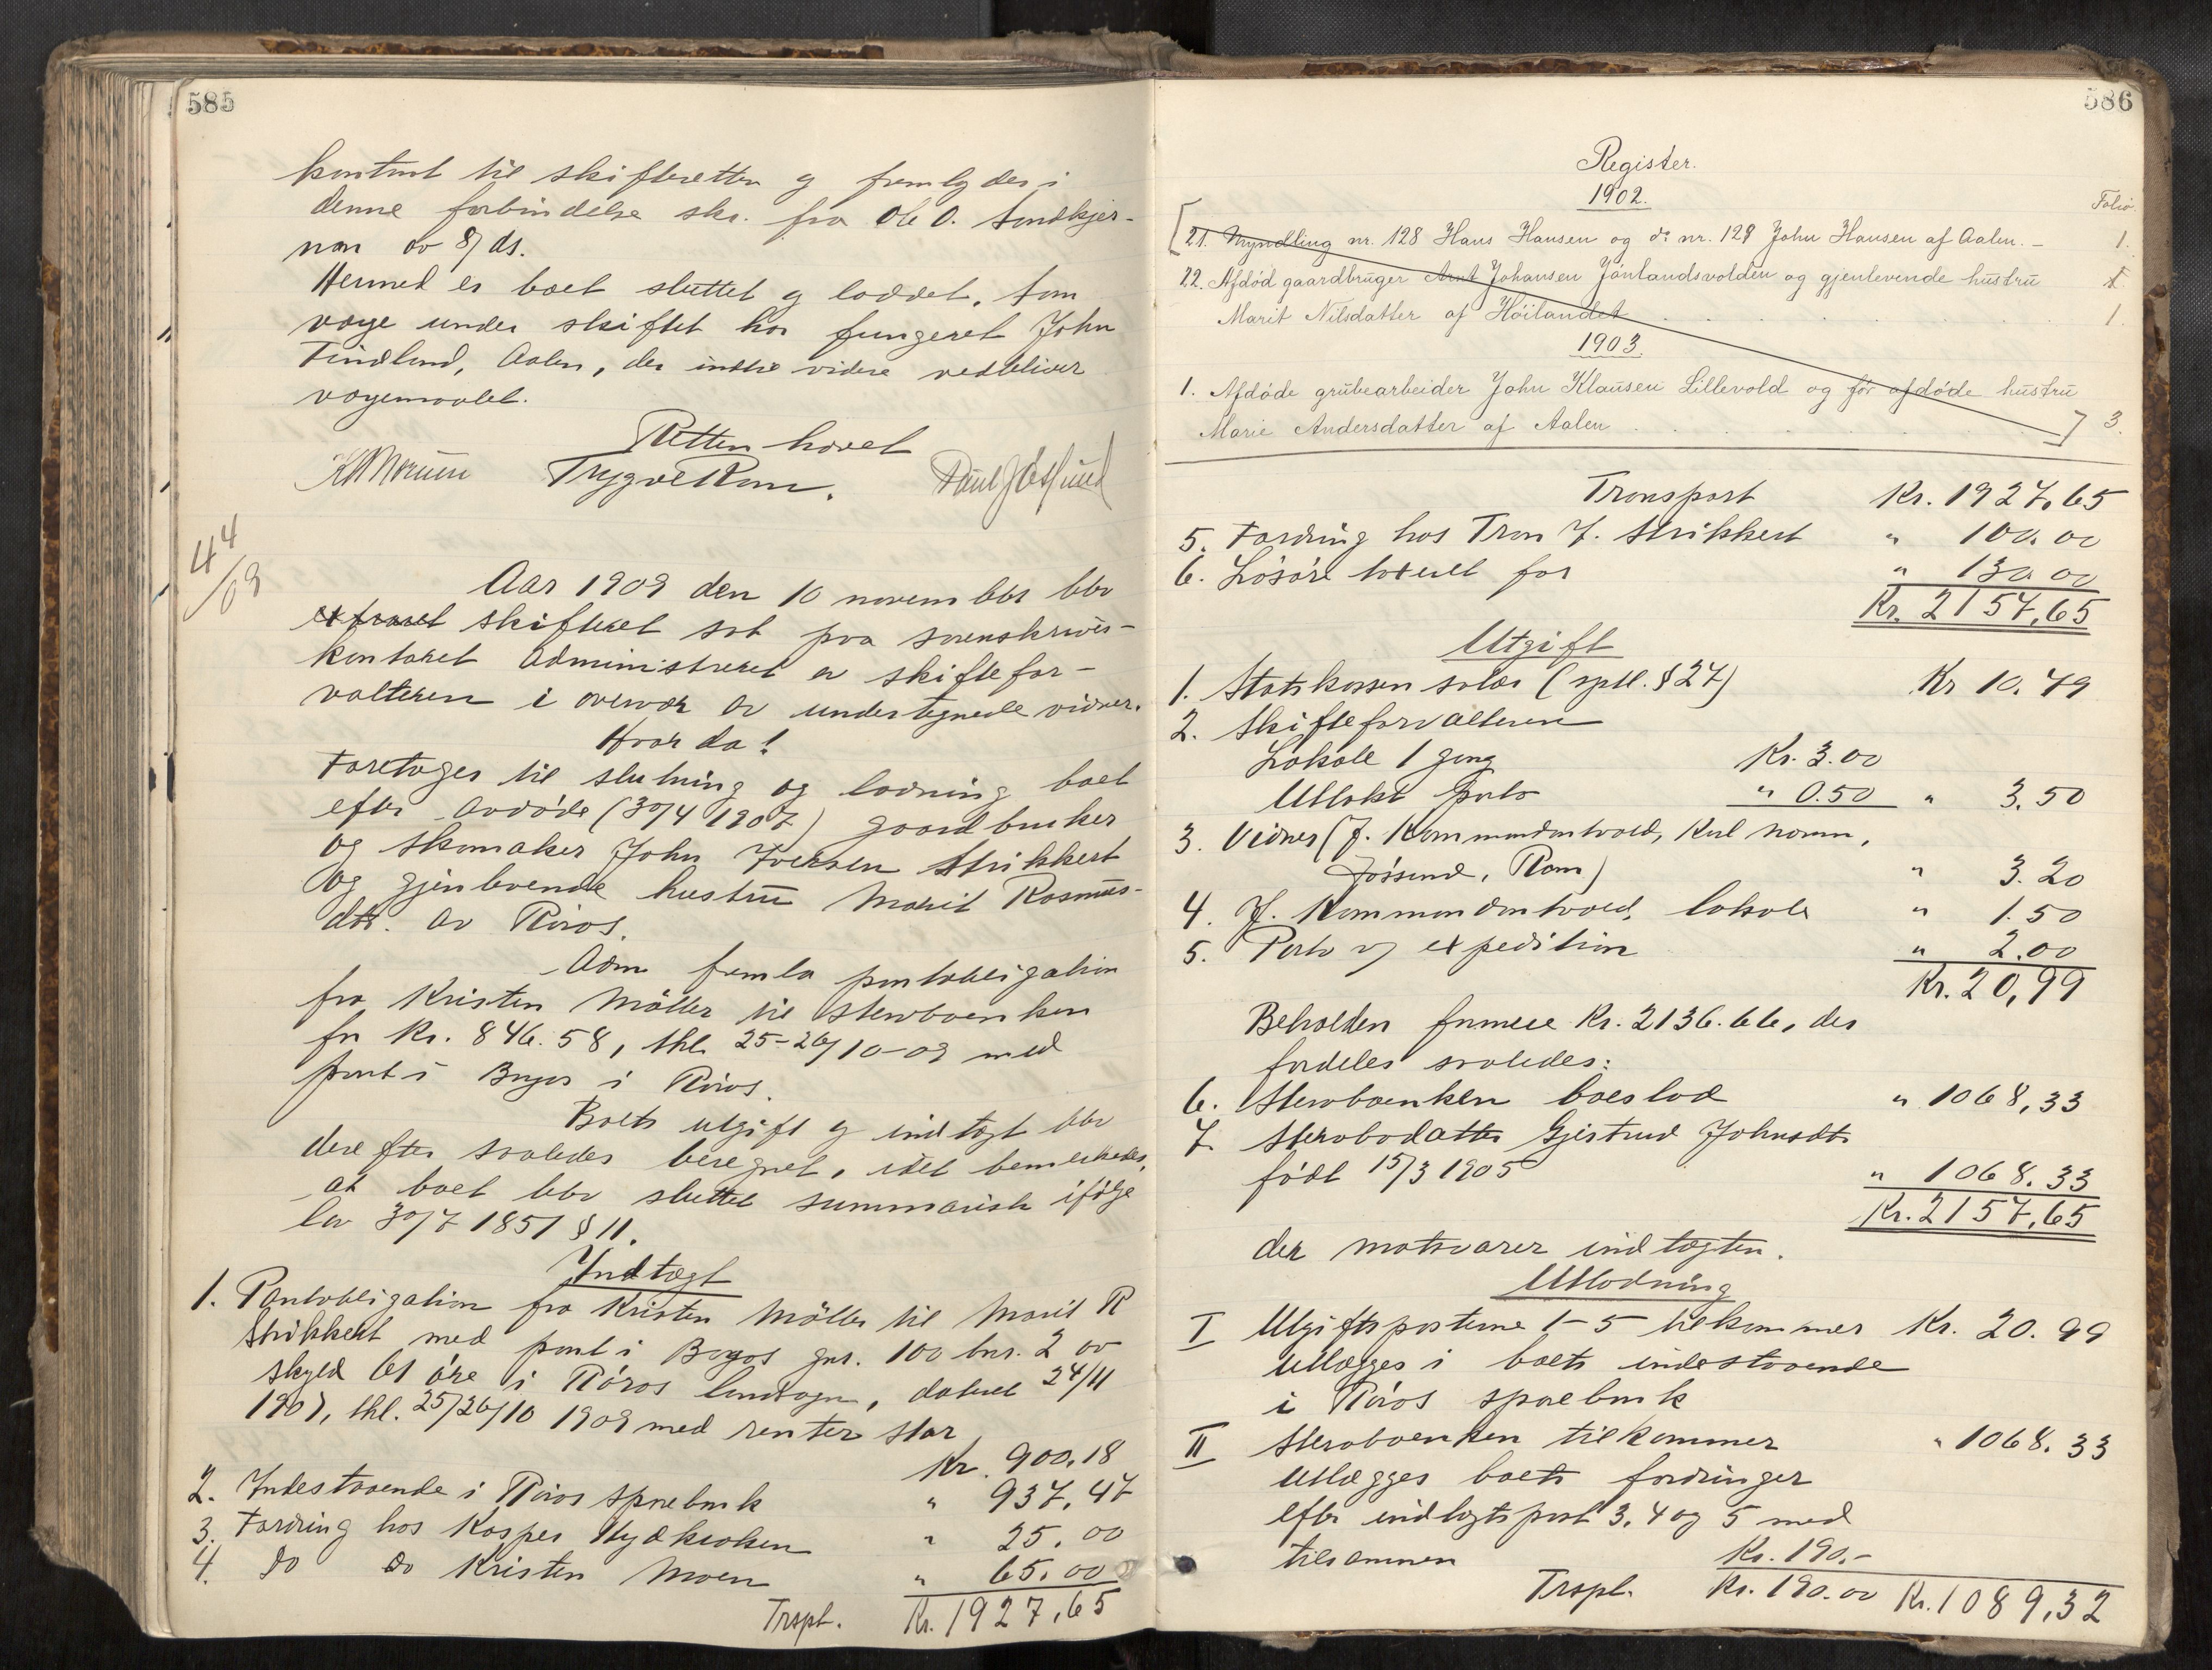 585
kontant til skifteretten og fremlydes i
denne forbindelse skr. fra Ole O.
av 8/ ds.
Hermed er boet sluttet og loddet. Som
verge under skiftet har fungeret John
Findlund, Aalen, der indtil videre vedbliver
vergemaalet.
Retten hævet
Trygve Ram.
44/09
Aar 1909 den 10 november blev
extraret skifteret sat paa sorenskriver-
kontoret administreret av skiftefor-
valteren i overvær av undertegnede vidner.
Hvor da!
Foretages til slutning og lodning boet
efter avdøde (30/4 1907) gaardbruker
og skomaker John Iversen Strikkert
og gjenlevende hustru Marit Rasmus-
dtr. av Røros.
Adm fremla pantobligation
fra Kristen Möller til sterboenken
for Kr. 846.58, thl. 25-26/10-09 med
pant i i Røros.
Boets utgift og indtægt blev
derefter saaledes beregnet, idet bemerkedes,
at boet blev sluttet summarisk ifölge
lov 30/7 1851 § 11.
Indtægt
1. Pantobligation fra Kristen Möller til Marit R
Strikkert med pant i gnr. 100 bnr. 2 av
skyld 61 öre i Röros landsogn, dateret 24/11
1907, thl. 25/26/10 1909 med renter stor
Kr. 900,18
2. Indestaaende i Röros sparebank " 937,47
3. Fordring hos Kasper " 25.00
4. do do Kristen Moen " 65.00
Trspt. Kr. 1927,65
586
Register.
1902.
Folio.
21. Myndling nr. 128 Hans Hansen og do nr. 129 John Hansen af Aalen. – 1.
22. Afdød gaardbruger Arnt Johansen Jönlandsvolden og gjenlevende hustru
Marit Nilsdatter af Höilandet . . . . 1.
1903.
1. Afdøde grubearbeider John Klausen Lillevold og før afdøde hustru
Marie Andersdatter af Aalen . . . . 3.
Transport Kr. 1927,65
5. Fordring hos Tron J. Strikkert " 100.00
6. Lösöre takseret for " 130.00
Kr. 2157,65
Utgift
1. Statskassen salær (sptl. § 27) Kr 10.79
2. Skifteforvalteren
Lokale 1 gang Kr. 3.00
Utlakt porto " 0.50 " 3.50
3. Vidner (J. Kommandantvold, Karl Norum,
Jössund, Ram) " 3.20
4. J. Kommandantvold, lokale " 1.50
5. Porto og expedition " 2.00
Kr. 20,99
Beholden formue Kr. 2136.66, der
fordeles saaledes:
6. Sterboenken boeslod " 1068,33
7. Sterbodatter Gjertrud Johnsdtr
födt 15/3 1905 " 1068.33
Kr. 2157,65
der motsvarer indtægten.
Utlodning
I Utgiftsposterne 1–5 tilkommer Kr. 20.99
utlægges i boets indestaaende
i Röros sparebank
II Sterboenken tilkommer " 1068.33
utlægges boets fordringer
efter indtægtspost 3, 4 og 5 med
tilsammen Kr. 190.–
Trspt. Kr. 190.00 Kr. 1089,32